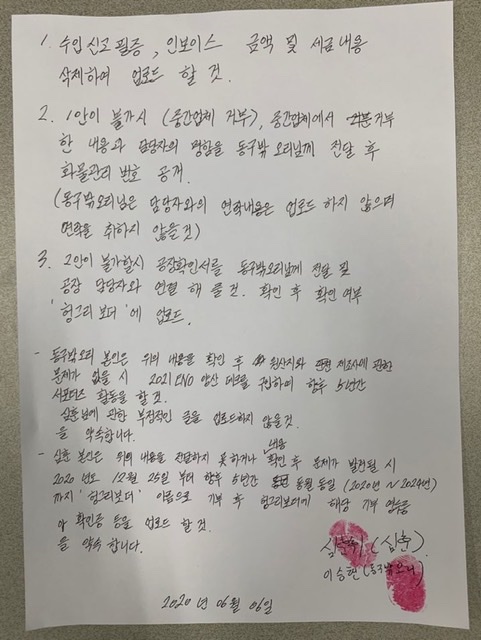 1. 수입신고필증, 인보이스 금액 및 세금내용
삭제하여 업로드 할 것.
2. 1안이 불가시 (중간업체 거부), 중간업체에서 거부
한 내용과 담당자의 명함을 동구밖오리님께 전달 후
화물관리 번호 공개.
(동구밖오리님은 담당자와의 연락내용은 업로드 하지 않으며
연락을 취하지 않을것)
3. 2안이 불가할시 공장확인서를 동구밖오리님께 전달 및
공장 담당자와 연결 해 줄 것. 확인 후 확인 여부
'헝그리보더'에 업로드.
- 동구밖오리 본인은 위의 내용을 확인 후 원산지와 제조사에 관한
문제가 없을 시 2021 양산 데크를 구입하여 향후 5년간
서포터즈 활동을 할 것.
심훈님에 관한 부정적인 글을 업로드하지 않을것.
을 약속합니다.
- 심훈 본인은 위의 내용을 전달하지 못하거나 내용 확인 후 문제가 발견될 시
2020년도 12월 25일부터 향후 5년간 동월동일 (2020년 ~ 2024년)
까지 '헝그리보더' 이름으로 기부 후 헝그리보더에 해당 기부 영수증
와 확인증 등을 업로드 할 것.
을 약속 합니다.
(심훈)
이승현 (동구밖오리)
2020년 06월 06일